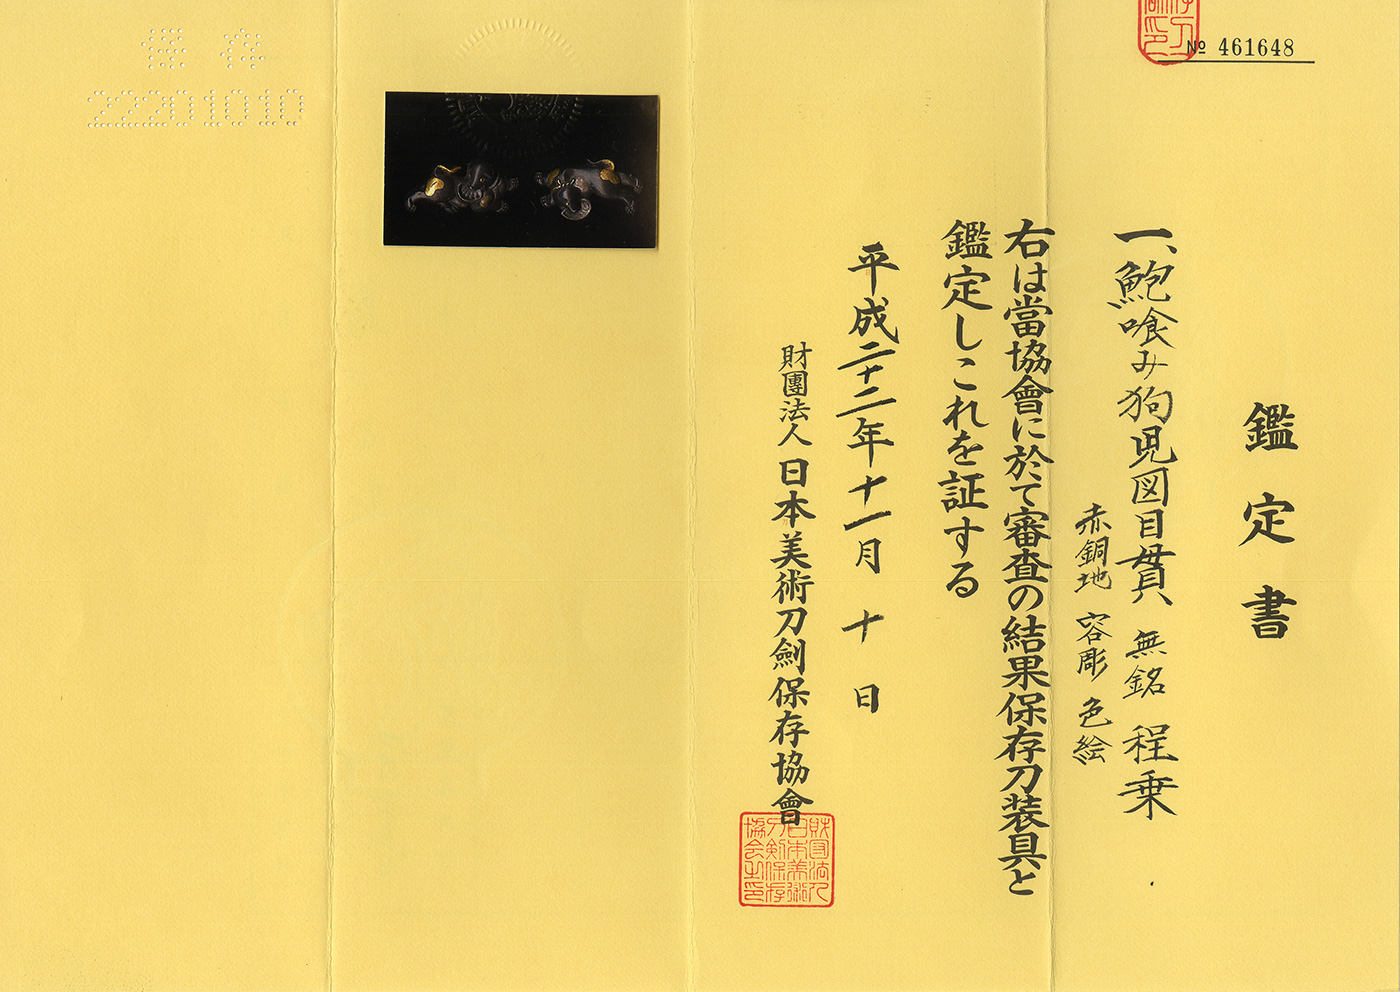 № 461648
鑑定書
一、鮑喰み狗児図目貫 無銘 程乗
赤銅地 容彫 色絵
右は當協會に於て審査の結果保存刀装具と
鑑定しこれを証する
平成二十二年十一月十日
財團法人 日本美術刀劍保存協會
財団法人
日本美術
刀剣保存
協会之印
22201010